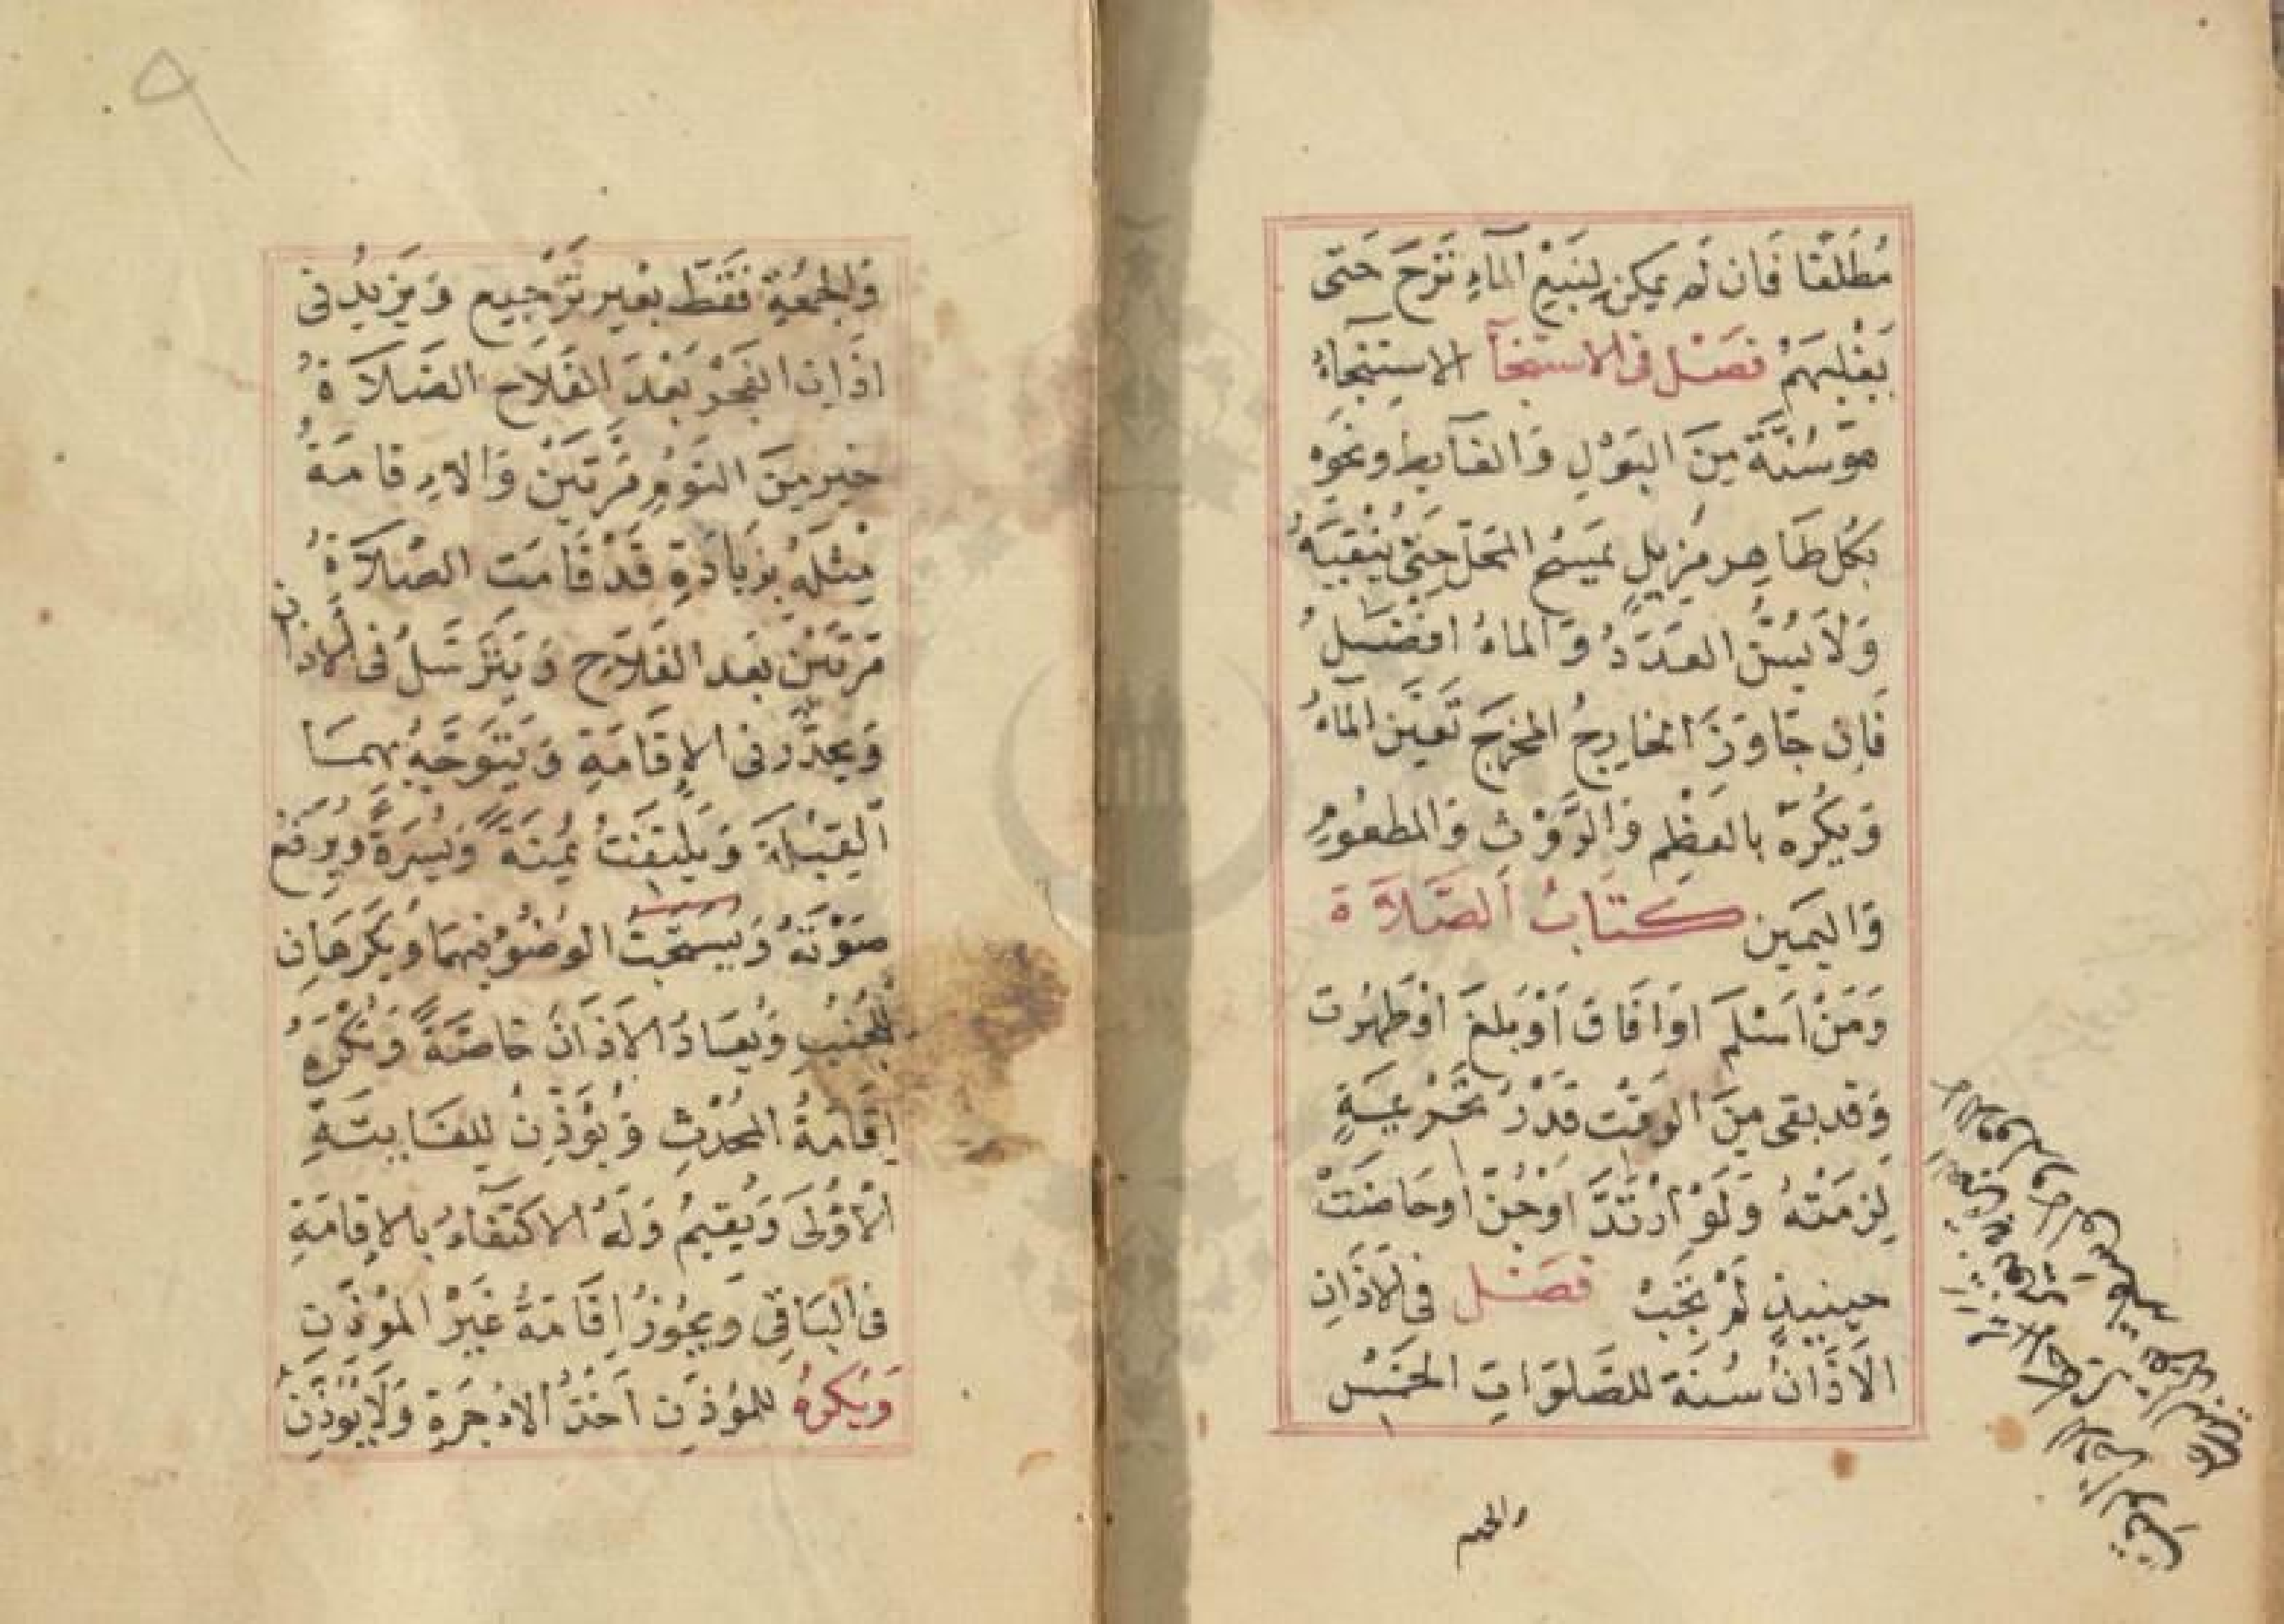 مُطْلَقًا فَاِن لَم يمكن لِنَبْعِ المآءِ نَزَحَ حَتى
يَغْلِبَهُمْ فَصْلٌ فى الاستنجآ الاستِنْجاءُ
هوَ سُنَّةٌ مِنَ البَوْلِ وَالغآيطِ ونحوِه
بِكُلِ طَاهِر مُزِيلٍ يَمسَحُ المَحَلّ حَتّى يُنْقِيَهُ
وَلَا يُسَنُّ العَدَدُ وَالماءُ افضَلُ
فَاِن جَاوَزَ الخارِجُ المخرَجَ تَعيَّنَ المآءُ
وَيكُرَهُ بالعَظْمِ وَالرَّوْثِ وَالمطعُومِ
وَاليَمِين كِتَابُ الصَّلَاة
وَمَنْ اَسْلَمَ اَوْ اَفَاقَ اَوْ بَلَغَ اَوْ طَهُرت
وَقد بقى مِنَ الوَقْت قَدْرُ تَحْرِيمَةٍ
لَزِمَتْهُ وَلَوْ اَرْتَدَّ اَوْ جُنَّ اَو حَاضَتْ
حينيذٍ لَمْ تَجِبْ فَصْل فى الَاذَانِ
الَاذَانُ سُنَة للصَّلَوَاتِ الخَمْسِ
والجمعه
وَالجمُعَةِ فَقَطْ بغَير تَرجِيع وَيَزيدُ فى
اذَانِ الفَجْرِ بَعْدَ الفَلَاح الصَلَاةُ
خيرمِنَ النَومِ مَرَّتَيْن وَالاِقامَةُ
مِثلُهُ بزيَادَةِ قَدْ قَامَت الصَلَاةُ
مَرَتَينِ بَعد الفَلَاحِ وَيَتَرَسَّلُ فى الاَذَانِ
وَيحدُرُ فى الاِقَامَةِ وَيَتَوَجَّهُ بِهِمَا
القِبْلَةَ وَيَلْتفِتُ يَمنَةً وَيَسْرَةً وَيرفَعُ
صَوْتَهُ وَيُستَحَبُّ الوضُوُ فيهمَا وَيكرَهَانِ
للجُنُبِ وَيُعَادُ الاَذَانُ خَاصَّةً وَتُكْرَهُ
اِقَامَةُ المُحْدِثِ وَيُؤَذِّنُ لِلفَايِتَةِ
الْاُوْلَى وَيُقيمُ وَلَهُ الاكتَفآءُ بالاِقامَةِ
فى البَاقِى وَيجُوزُ اِقَامَةُ غَيْرُ المُؤذِنِ
وَيُكرَهُ للمؤذِنِ اَخْذُ الاُجْرَةِ وَلَا يُؤذِّنُ